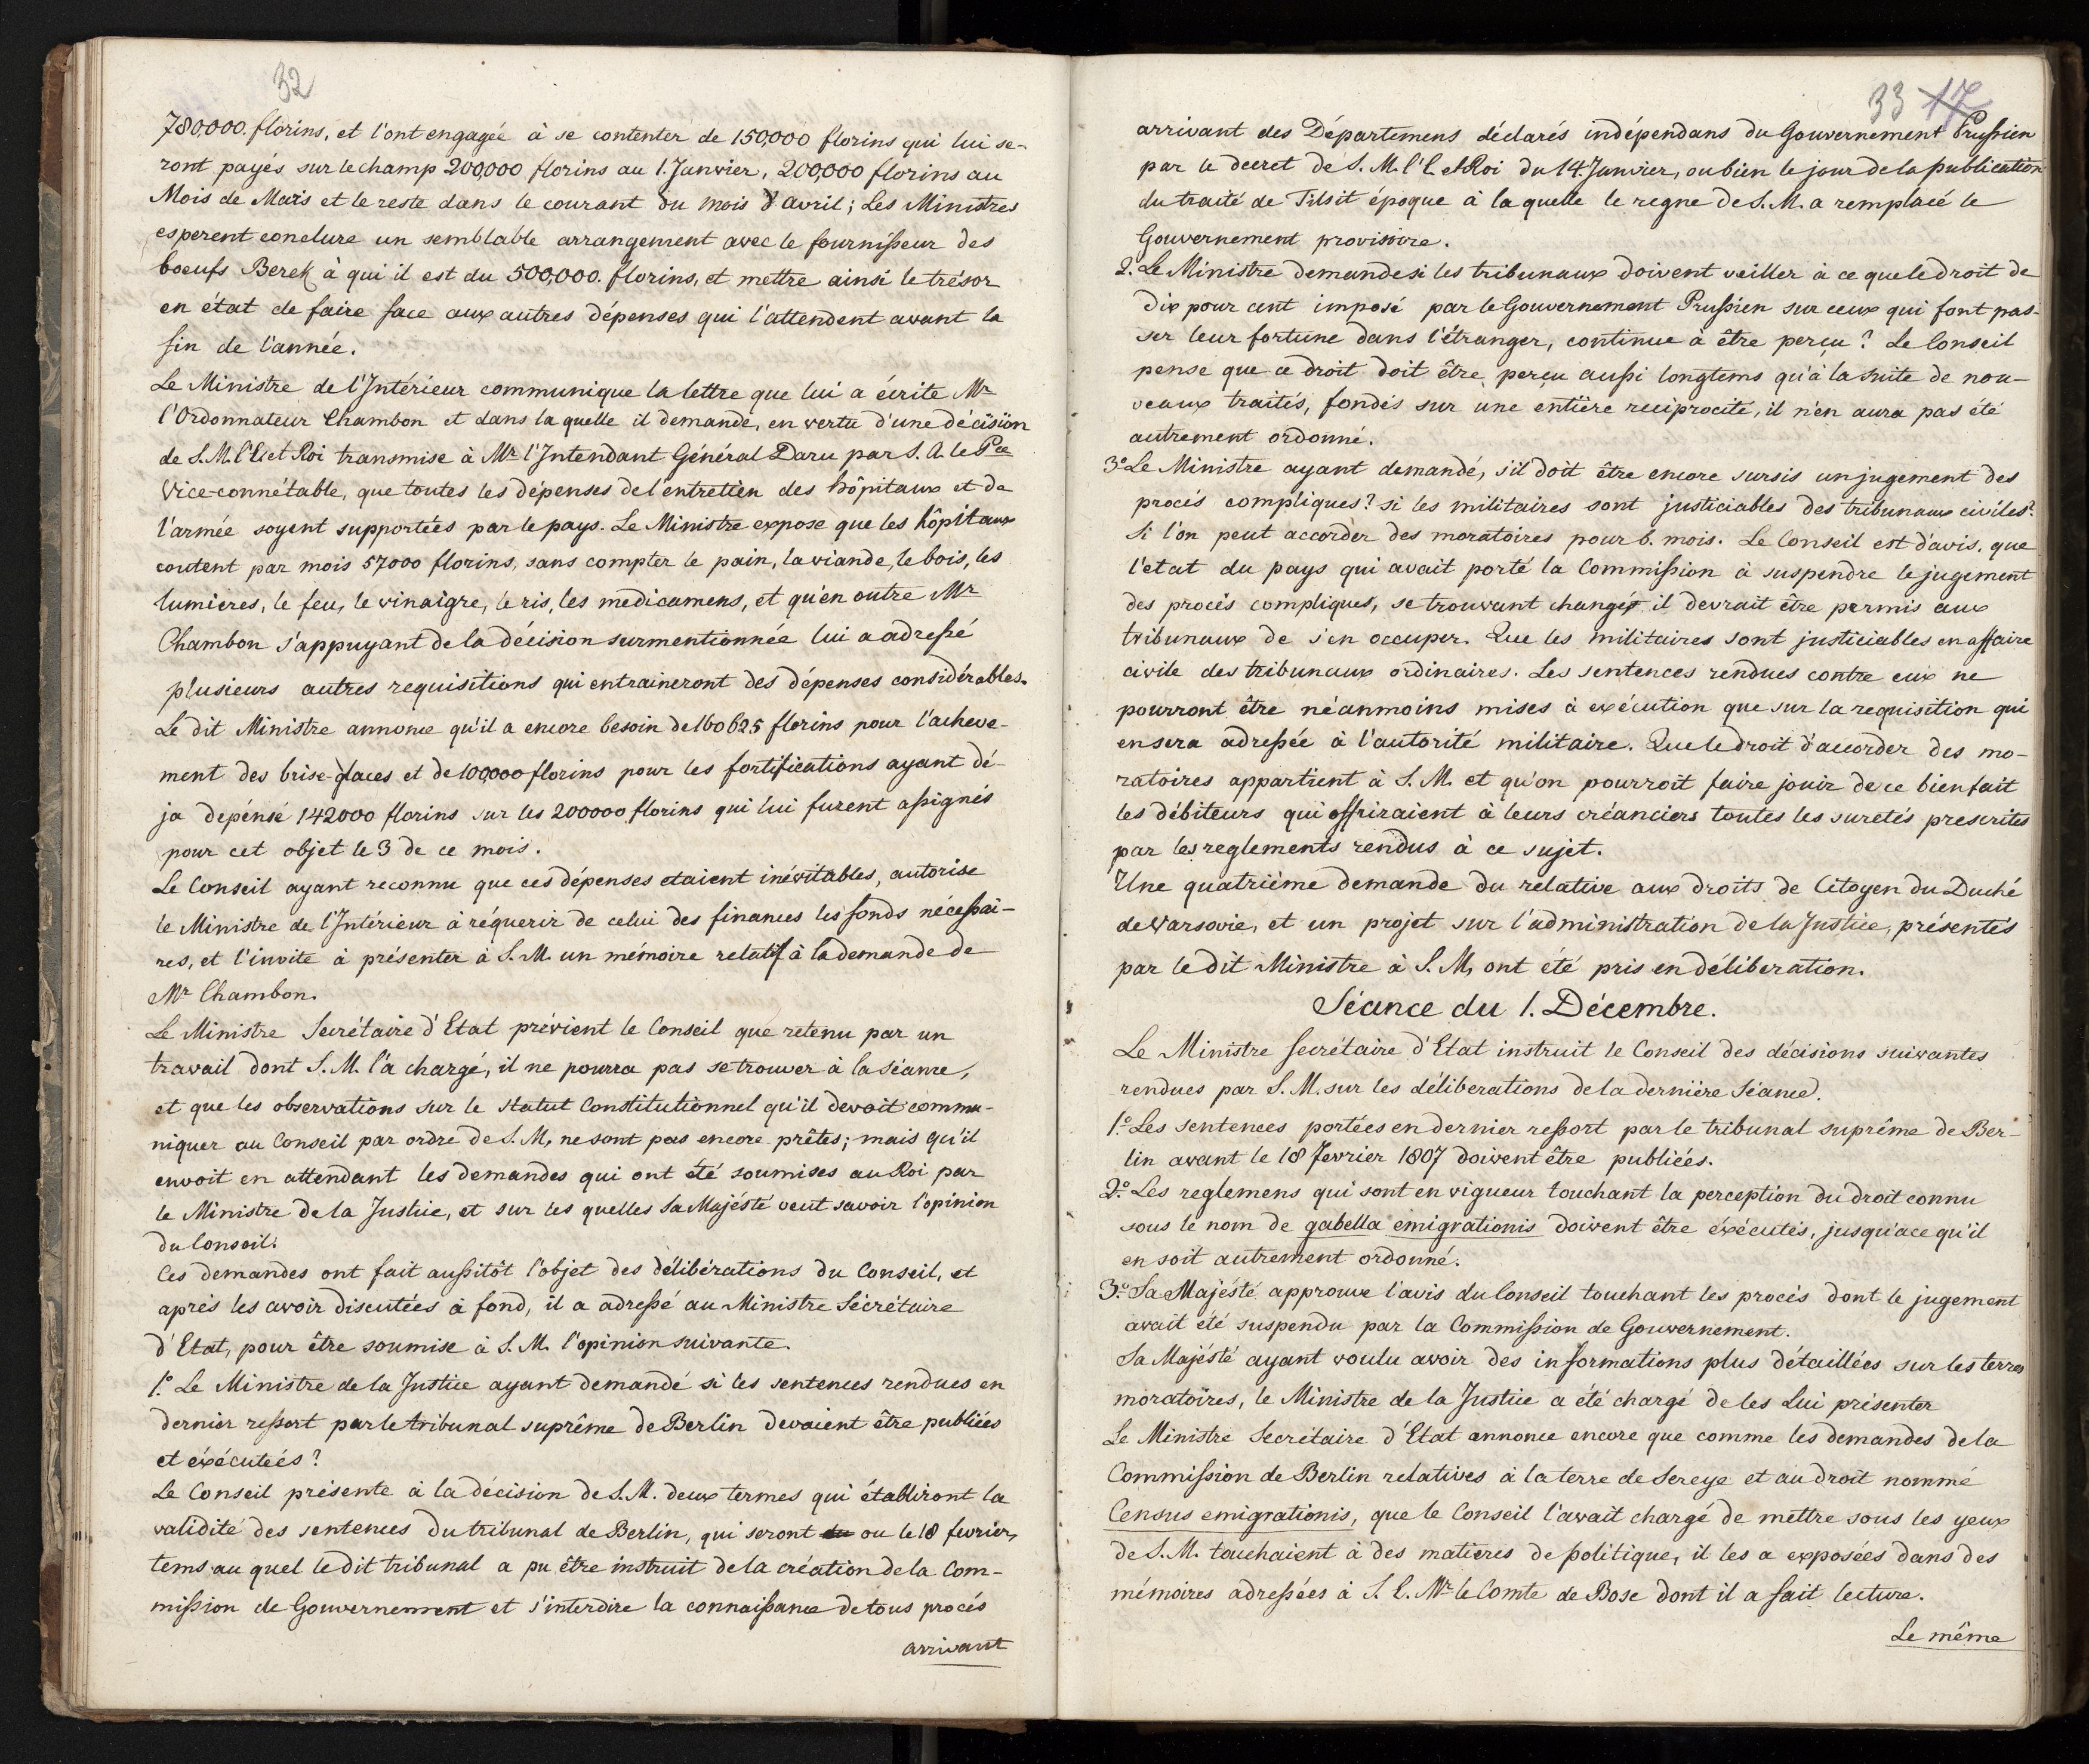 32
780,000. florins, et l'ont engagée à se contenter de 150,000 florins qui lui se-
ront payés sur le champ 200,000 florins au 1. Janvier, 200,000 florins au
Mois de Mars et le reste dans le courant du mois d'avril; Les Ministres
esperent conclure un semblable arrangement avec le fournisseur des
boeufs Berek à qui il est du 500,000. florins, et mettre ainsi le trésor
en état de faire face aux autres dépenses qui l'attendent avant la
fin de l'année.
Le Ministre de l'Intérieur communique la lettre que lui a écrite Mr
l'Ordonnateur Chambon et dans la quelle il demande, en vertu d'une décision
de S. M. l'E et Roi transmise à Mr l'Intendant Général Daru par S. A. le Pce
Vice-connétable, que toutes les dépenses de l'entretien des hôpitaux et de
l'armée soyent supportées par le pays. Le Ministre expose que les hôpitaux
coutent par mois 57000 florins, sans compter le pain, la viande, le bois, les
lumieres, le feu, le vinaigre, le ris, les medicamens, et qu'en outre Mr
Chambon s'appuyant de la décision surmentionnée lui a adressé
plusieurs autres requisitions qui entraineront des dépenses considérables.
Le dit Ministre annonce qu'il a encore besoin de 160625 florins pour l'acheve-
ment des brise-glaces et de 100,000 florins pour les fortifications ayant dé-
ja dépensé 142000 florins sur les 200000 florins qui lui furent assignés
pour cet objet le 3 de ce mois.
Le Conseil ayant reconnu que ces dépenses etaient inévitables, autorise
le Ministre de l'Intérieur à réquerir de celui des finances les fonds nécessai-
res, et l'invite à présenter à S. M. un mémoire relatif à la demande de
Mr Chambon.
Le Ministre Secrétaire d'Etat prévient le Conseil que retenu par un
travail dont S. M. l'a chargé, il ne pourra pas se trouver à la séance,
et que les observations sur le statut Constitutionnel qu'il devoit commu-
niquer au Conseil par ordre de S. M, ne sont pas encore prêtes; mais qu'il
envoit en attendant les demandes qui ont été soumises au Roi par
le Ministre de la Justice, et sur les quelles Sa Majésté veut savoir l'opinion
du Conseil.
Ces demandes ont fait aussitôt l'objet des délibérations du Conseil, et
aprés les avoir discutées à fond, il a adressé au Ministre Sécrétaire
d'Etat, pour être soumise à S. M. l'opinion suivante.
1.º Le Ministre de la Justice ayant demandé si les sentences rendues en
dernier ressort par le tribunal suprême de Berlin devaient être publiées
et éxécuteés?
Le Conseil présente à la décision de S. M. deux termes qui établiront la
validité des sentences du tribunal de Berlin, qui seront ou le 18 fevrier,
tems au quel le dit tribunal a pu être instruit de la création de la Com-
mission de Gouvernement et s'interdire la connaissance de tous procés
arrivant
33 17
arrivant des Départemens déclarés indépendans du Gouvernement Prussien
par le decret de S. M. l'E. et Roi du 14 Janvier, ou bien le jour de la publication
du traité de Tilsit époque à la quelle le regne de S. M. a remplacé le
Gouvernement provisoire.
2. Le Ministre demande si les tribunaux doivent veiller à ce que le droit de
dix pour cent imposé par le Gouvernement Prussien sur ceux qui font pas-
ser leur fortune dans l'étranger, continue à être perçu? Le Conseil
pense que ce droit doit être perçu aussi longtems qu'à la suite de nou-
veaux traités, fondés sur une entière reciprocité, il n'en aura pas été
autrement ordonné.
3º Le Ministre ayant demandé, s'il doit être encore sursis un jugement des
procés compliques? si les militaires sont justiciables des tribunaux civiles?
Si l'on peut accorder des moratoires pour 6. mois. Le Conseil est d'avis, que
l'etat du pays qui avait porté la Commission à suspendre le jugement
des procés compliqués, se trouvant changé, il devrait être permis aux
tribunaux de s'en occuper. Que les militaires sont justiciables en affaire
civile des tribunaux ordinaires. Les sentences rendues contre eux ne
pourront être néanmoins mises à exécution que sur la requisition qui
en sera adressée à l'autorité militaire. Que le droit d'accorder des mo-
ratoires appartient à S. M. et qu'on pourroit faire jouir de ce bienfait
les débiteurs qui offriraient à leurs créanciers toutes les suretés prescrites
par les reglements rendus à ce sujet.
Une quatriéme demande du relative aux droits de Citoyen du Duché
de Varsovie, et un projet sur l'administration de la Justice, présentés
par le dit Ministre à S. M, ont été pris en déliberation.
Séance du 1. Décembre.
Le Ministre secrétaire d'Etat instruit le Conseil des décisions suivantes
rendues par S. M. sur les déliberations de la derniére Séance.
1.º Les sentences portées en dernier ressort par le tribunal suprême de Ber-
lin avant le 18 fevrier 1807 doivent être publiées.
2.º Les reglemens qui sont en vigueur touchant la perception du droit connu
sous le nom de gabella emigrationis doivent être éxécutés, jusqu'a ce qu'il
en soit autrement ordonné.
3.º Sa Majésté approuve l'avis du Conseil touchant les procés dont le jugement
avait été suspendu par la Commission de Gouvernement.
Sa Majésté ayant voulu avoir des informations plus détaillées sur les terres
moratoires, le Ministre de la Justice a été chargé de les Lui présenter
Le Ministre Secrétaire d'Etat annonce encore que comme les demandes de la
Commission de Berlin relatives à la terre de Sereye et au droit nommé
Census emigrationis, que le Conseil l'avait chargé de mettre sous les yeux
de S. M. touchaient à des matieres de politique, il les a exposées dans des
mémoires adressées à S. E. Mr le Comte de Bose dont il a fait lecture.
Le même